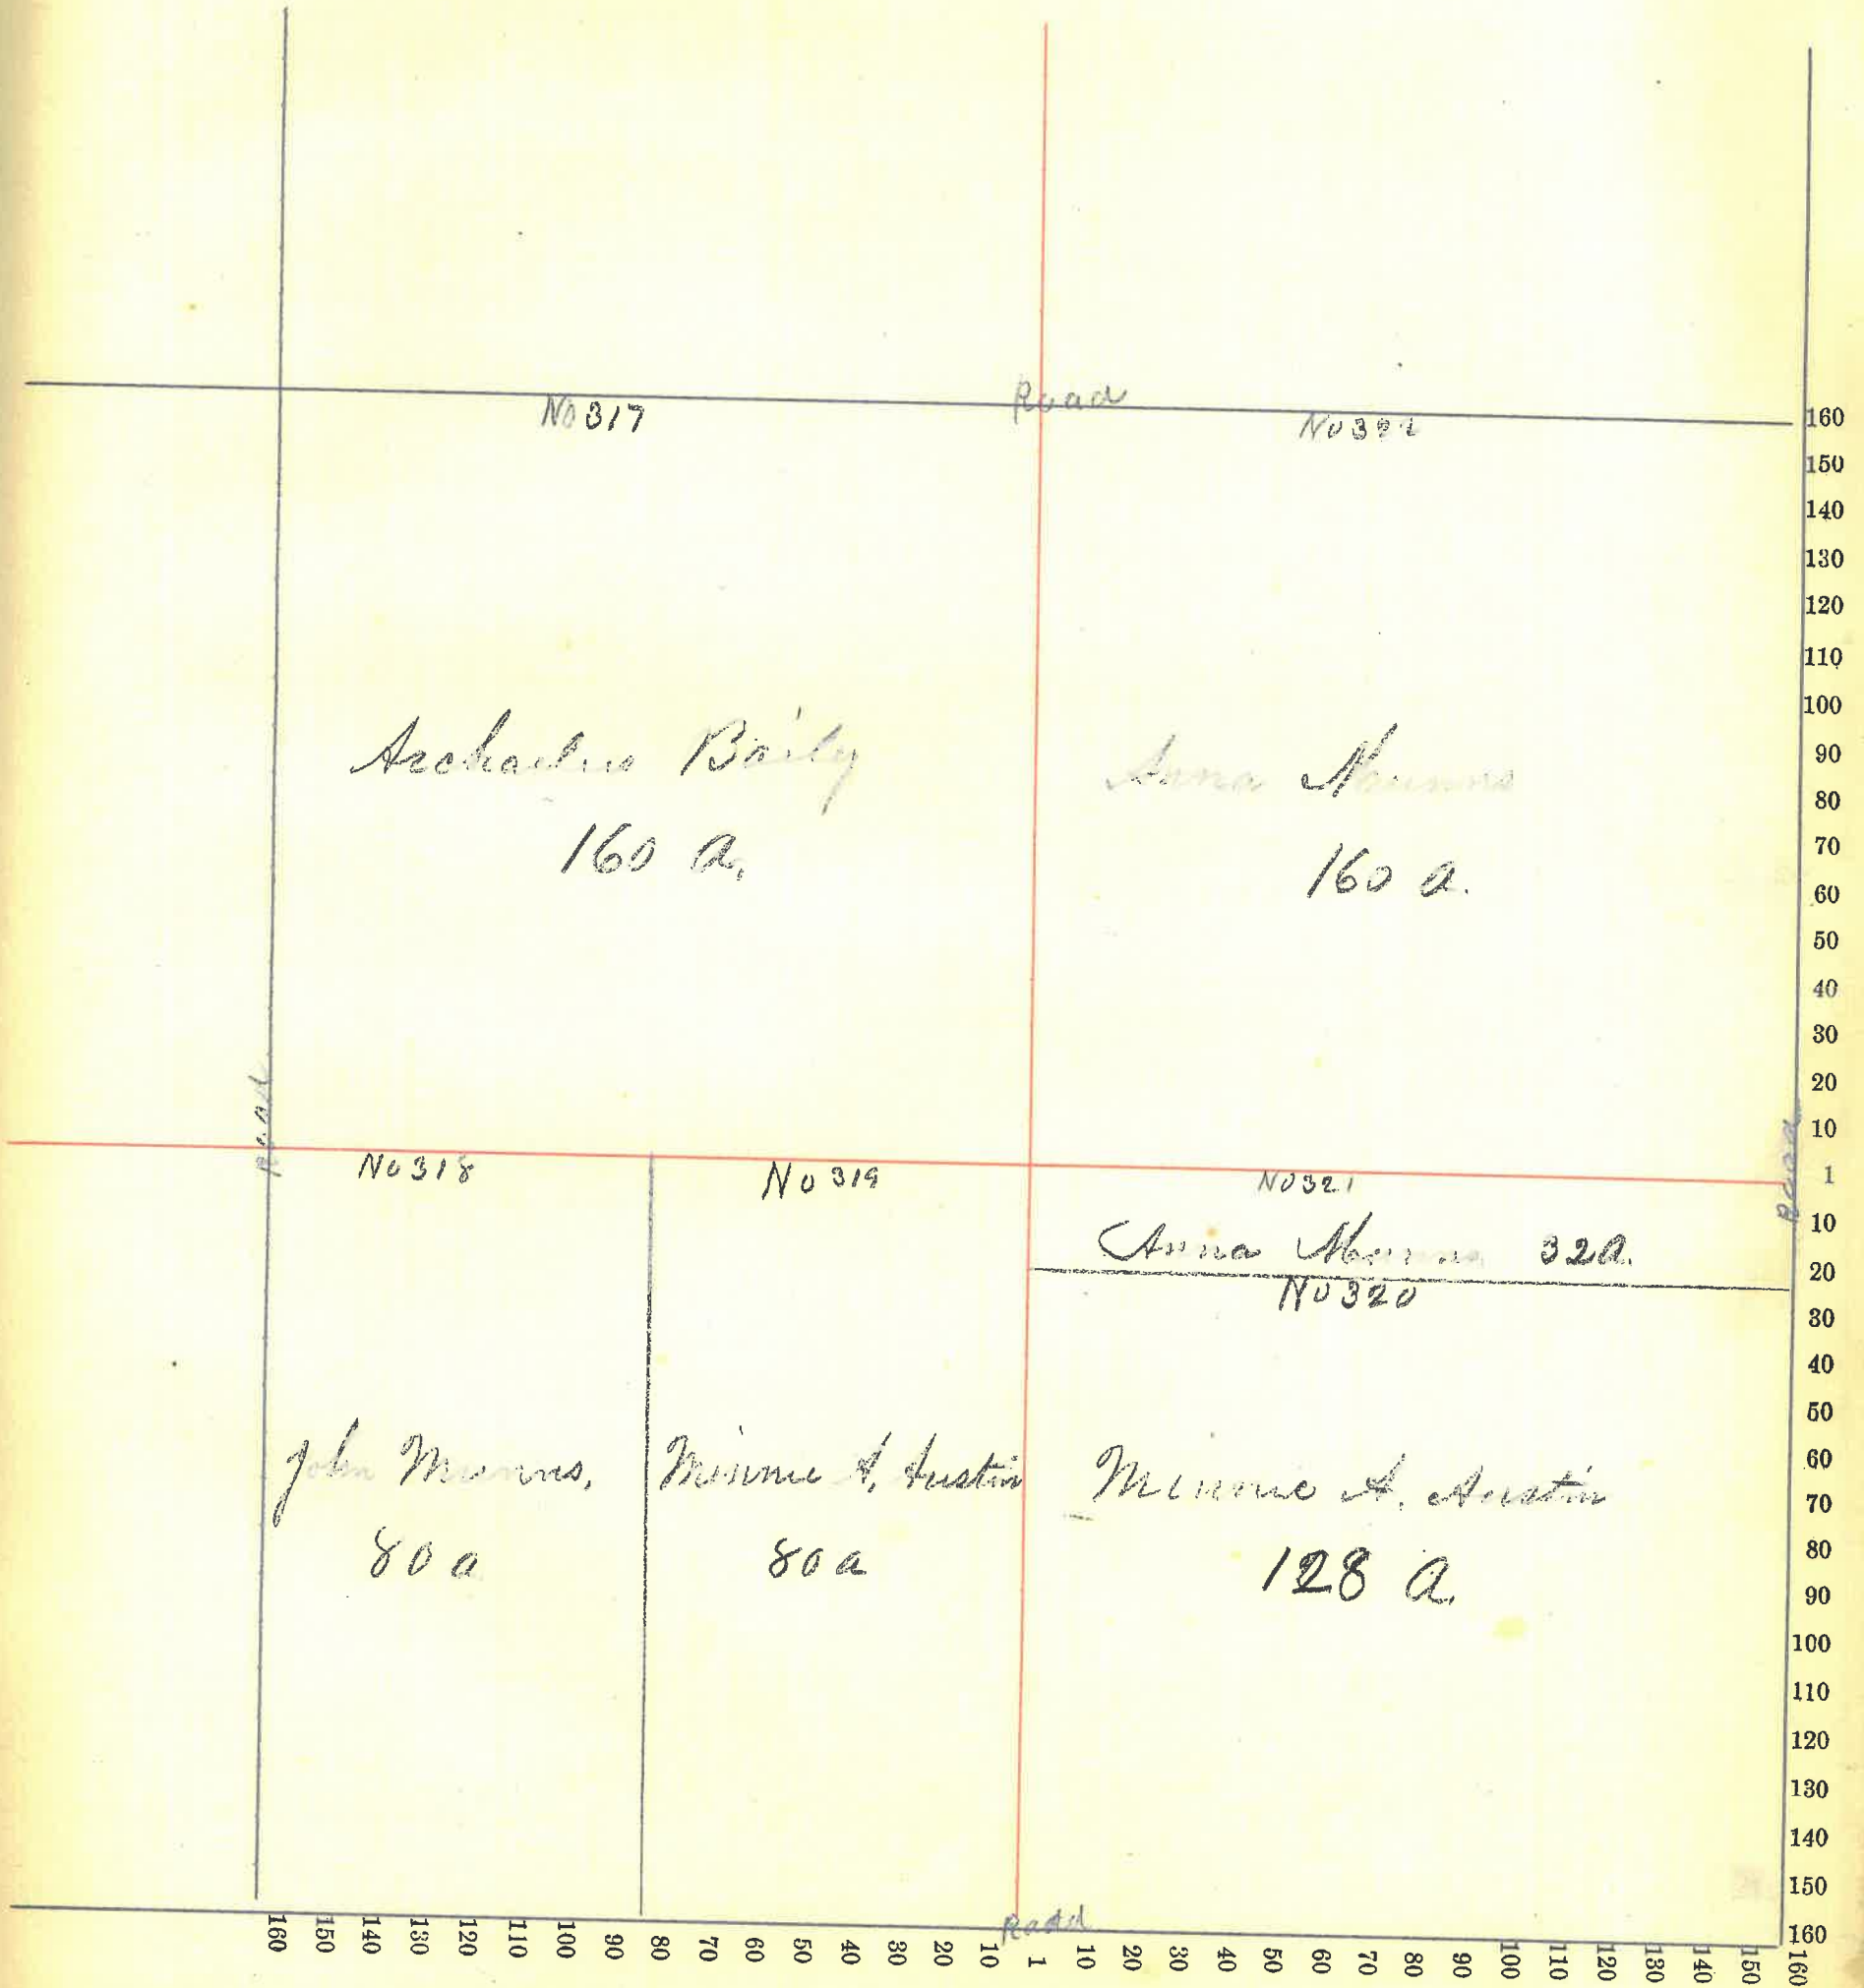 Road
No 317
No 322
Archaelus Baily
160 a.
Anna Munns
160 a.
Road
Road
No 318
No 319
No 321
Anna Munns 32 a.
No 320
John Munns.
80 a
Minnie A. Austin
80 a
Minnie A. Austin
128 a.
Road
160
150
140
130
120
110
100
90
80
70
60
50
40
30
20
10
1
10
20
30
40
50
60
70
80
90
100
110
120
130
140
150
160
160 150 140 130 120 110 100 90 80 70 60 50 40 30 20 10 1 10 20 30 40 50 60 70 80 90 100 110 120 130 140 150 160